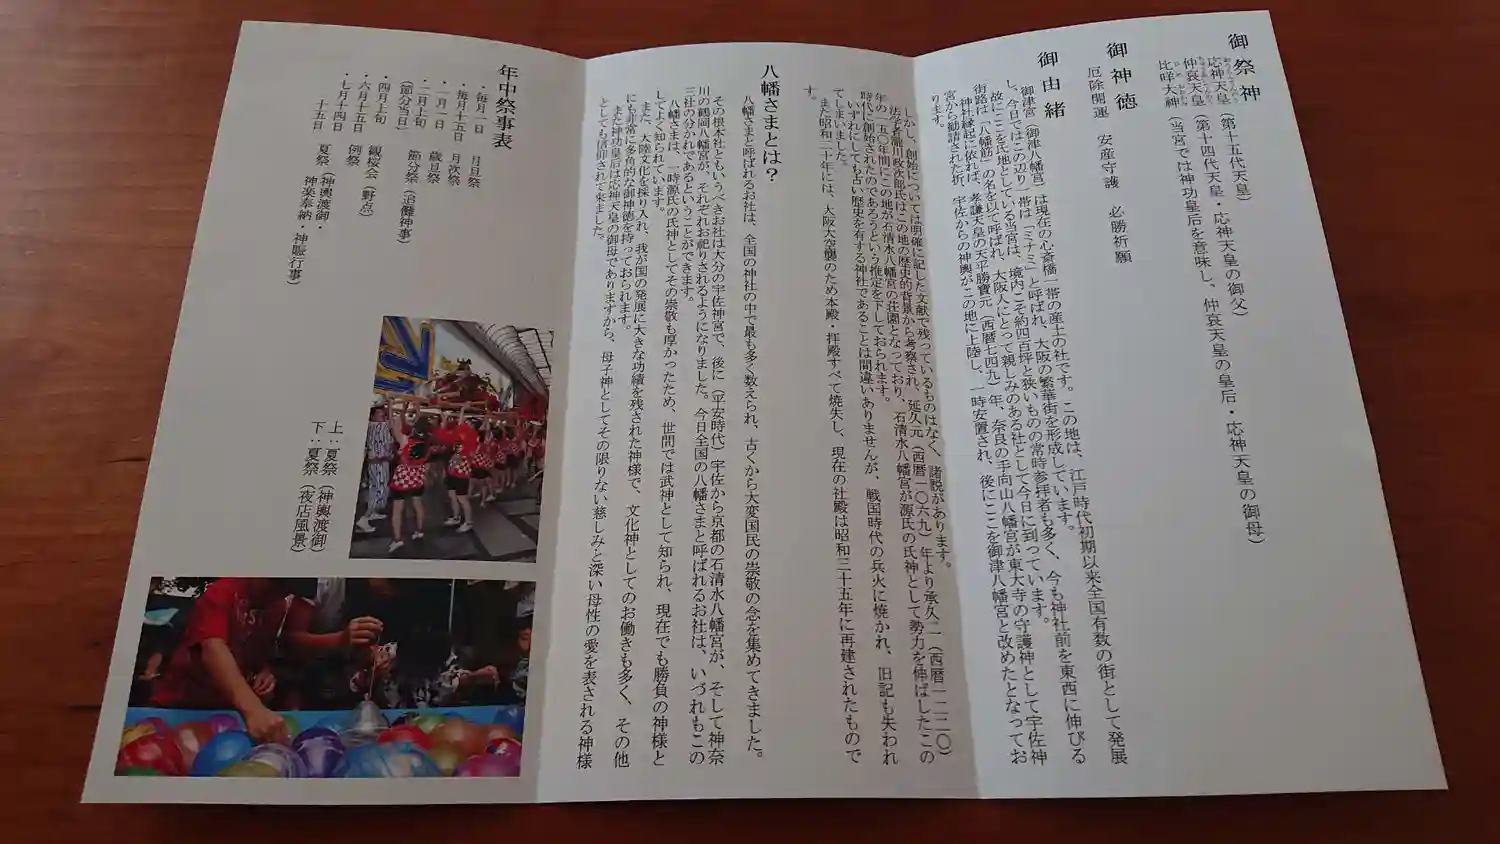 御祭神
応神天皇(第十五代天皇)
仲哀天皇(第十四代天皇・応神天皇の御父)
比咩大神(当宮では神功皇后を意味し、仲哀天皇の皇后・応神天皇の御母)
御神徳
厄除開運 安産守護 必勝祈願
御由緒
御津宮(御津八幡宮)は現在の心斎橋一帯の産土の社です。この地は、江戸時代初期以来全国有数の街として発展
し、今日ではこの辺り一帯は「ミナミ」と呼ばれ、大阪の繁華街を形成しています。
故にここを氏地としている当宮は、境内こそ約四百坪と狭いものの常時参拝者も多く、今も神社前を東西に伸びる
街路は「八幡筋」の名を以て呼ばれ、大阪人にとって親しみのある社として今日に到っています。
神社縁起に依れば、孝謙天皇の天平勝寶元(西暦七四九)年、奈良の手向山八幡宮が東大寺の守護神として宇佐神
宮から勧請された折、宇佐からの神輿がこの地に上陸し、一時安置され、後にここを御津八幡宮と改めたとなってお
ります。
しかし、創始については明確に記した文献で残っているものはなく、諸説があります。
法学者瀧川政次郎氏はこの地の歴史的背景から考察され、延久元(西暦一〇六九)年より承久二(西暦一二二〇)
年の一五〇年間にこの地が石清水八幡宮の荘園となっており、石清水八幡宮が源氏の氏神として勢力を伸ばしたこの
時代に創始されたのであろうという推定を下しておられます。
いずれにしても古い歴史を有する神社であることは間違いありませんが、戦国時代の兵火に焼かれ、旧記も失われ
てしまいました。
また昭和二十年には、大阪大空襲のため本殿・拝殿すべて焼失し、現在の社殿は昭和三十五年に再建されたもので
す。
八幡さまとは?
八幡さまと呼ばれるお社は、全国の神社の中で最も多く数えられ、古くから大変国民の崇敬の念を集めてきました。
その根本社ともいうべきお社は大分の宇佐神宮で、後に(平安時代)宇佐から京都の石清水八幡宮が、そして神奈
川の鶴岡八幡宮が、それぞれお祀りされるようになりました。今日全国の八幡さまと呼ばれるお社は、いづれもこの
三社の分かれであるということができます。
八幡さまは、時源氏の氏神としてその崇敬も厚かったため、世間では武神として知られ、現在でも勝負の神様と
してよく知られています。
また、大陸文化を採り入れ、我が国の発展に大きな功績を残された神様で、文化神としてのお働きも多く、その他
にも非常に多角的な御神徳を持っておられます。
また神功皇后は応神天皇の御母でありますから、母子神としてその限りない慈しみと深い母性の愛を表される神様
としても信仰されて来ました。
年中祭事表
・毎月一日 月旦祭
・毎月十五日 月次祭
・一月一日 歳旦祭
・二月上旬 節分祭(追儺神事)
(節分当日)
・四月上旬 観桜会(野点)
・六月十五日 例祭
・七月十四日 夏祭(神輿渡御・
十五日 神楽奉納・神賑行事)
上:夏祭(神輿渡御)
下:夏祭(夜店風景)